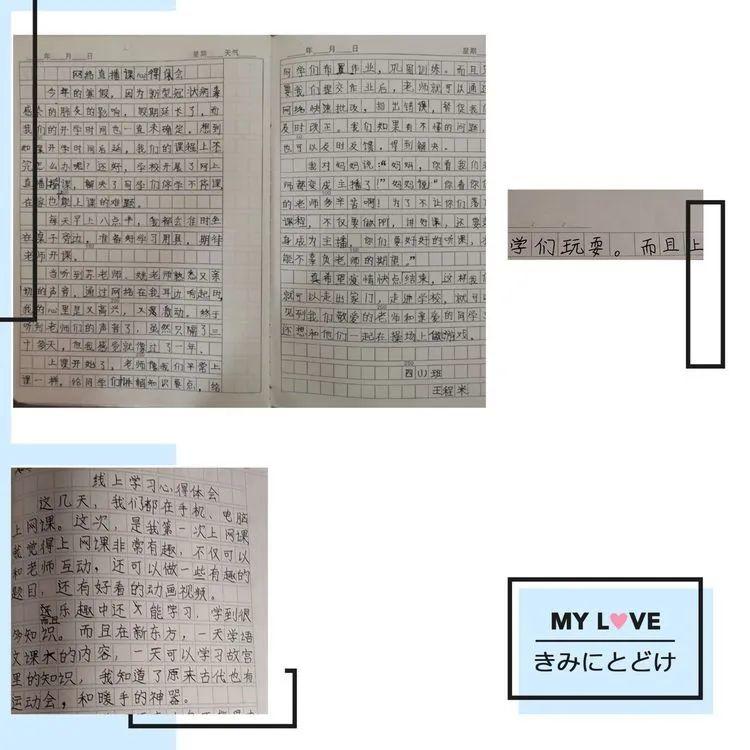 年 月 日 星期 天气
网络直播课心得体会
今年的寒假,因为新型冠状病毒
感染的肺炎的影响,假期延长了,而
我们的开学时间也一直未确定。想到
如果开学时间后延,我们的课程上不
完怎么办呢?还好,学校开展了网上
直播授课,解决了同学们停学不停课
在家也能上课的难题。
每天早上八点半,我都会准时坐
在桌子旁边,准备好学习用具,期待
老师开课。
当听到苏老师、姚老师熟悉又亲
切的声音,通过网络在我耳边响起时,
我的心里是又高兴,又激动。终于
听到老师们的声音了,虽然只隔了二
十多天,但我感觉就像过了一年。
上课开始了,老师像我们平常上
课一样,给同学们讲解知识要点,给
年 月 日 星期
同学们布置作业,巩固训练。而且只
要我们提交作业后,老师就可以通过
网络快速批改,指出错误,督促我们
及时改正。我们如果有不懂的问题,
也可以及时反馈,得到解决。
我对妈妈说:“妈妈,你看我们老
师都变成主播了!”妈妈说“你看你们
的老师多辛苦啊!为了不让你们落下
课程,不仅要做PPT,讲好课,还要变
身成为主播,你们要好好的听课,不
能辜负老师的期望。”
真希望疫情快点结束,这样我们
就可以走出家门,走进学校,就可以
见到我们敬爱的老师和亲爱的同学了
还想和他们一起在操场上做游戏。
四(1)班
王程米
学们玩耍。而且上
线上学习心得体会
这几天,我们都在手机、电脑
上网课。这次,是我第一次上网课
我觉得上网课非常有趣,不仅可以
和老师互动,还可以做一些有趣的
题目,还有好看的动画视频。
在乐趣中还又能学习,学到很
多知识。而且在新东方,一天学语
文课本的内容,一天可以学习故宫
里的知识,我知道了原来古代也有
运动会,和暖手的神器。
MY L♥VE
きみにとどけ